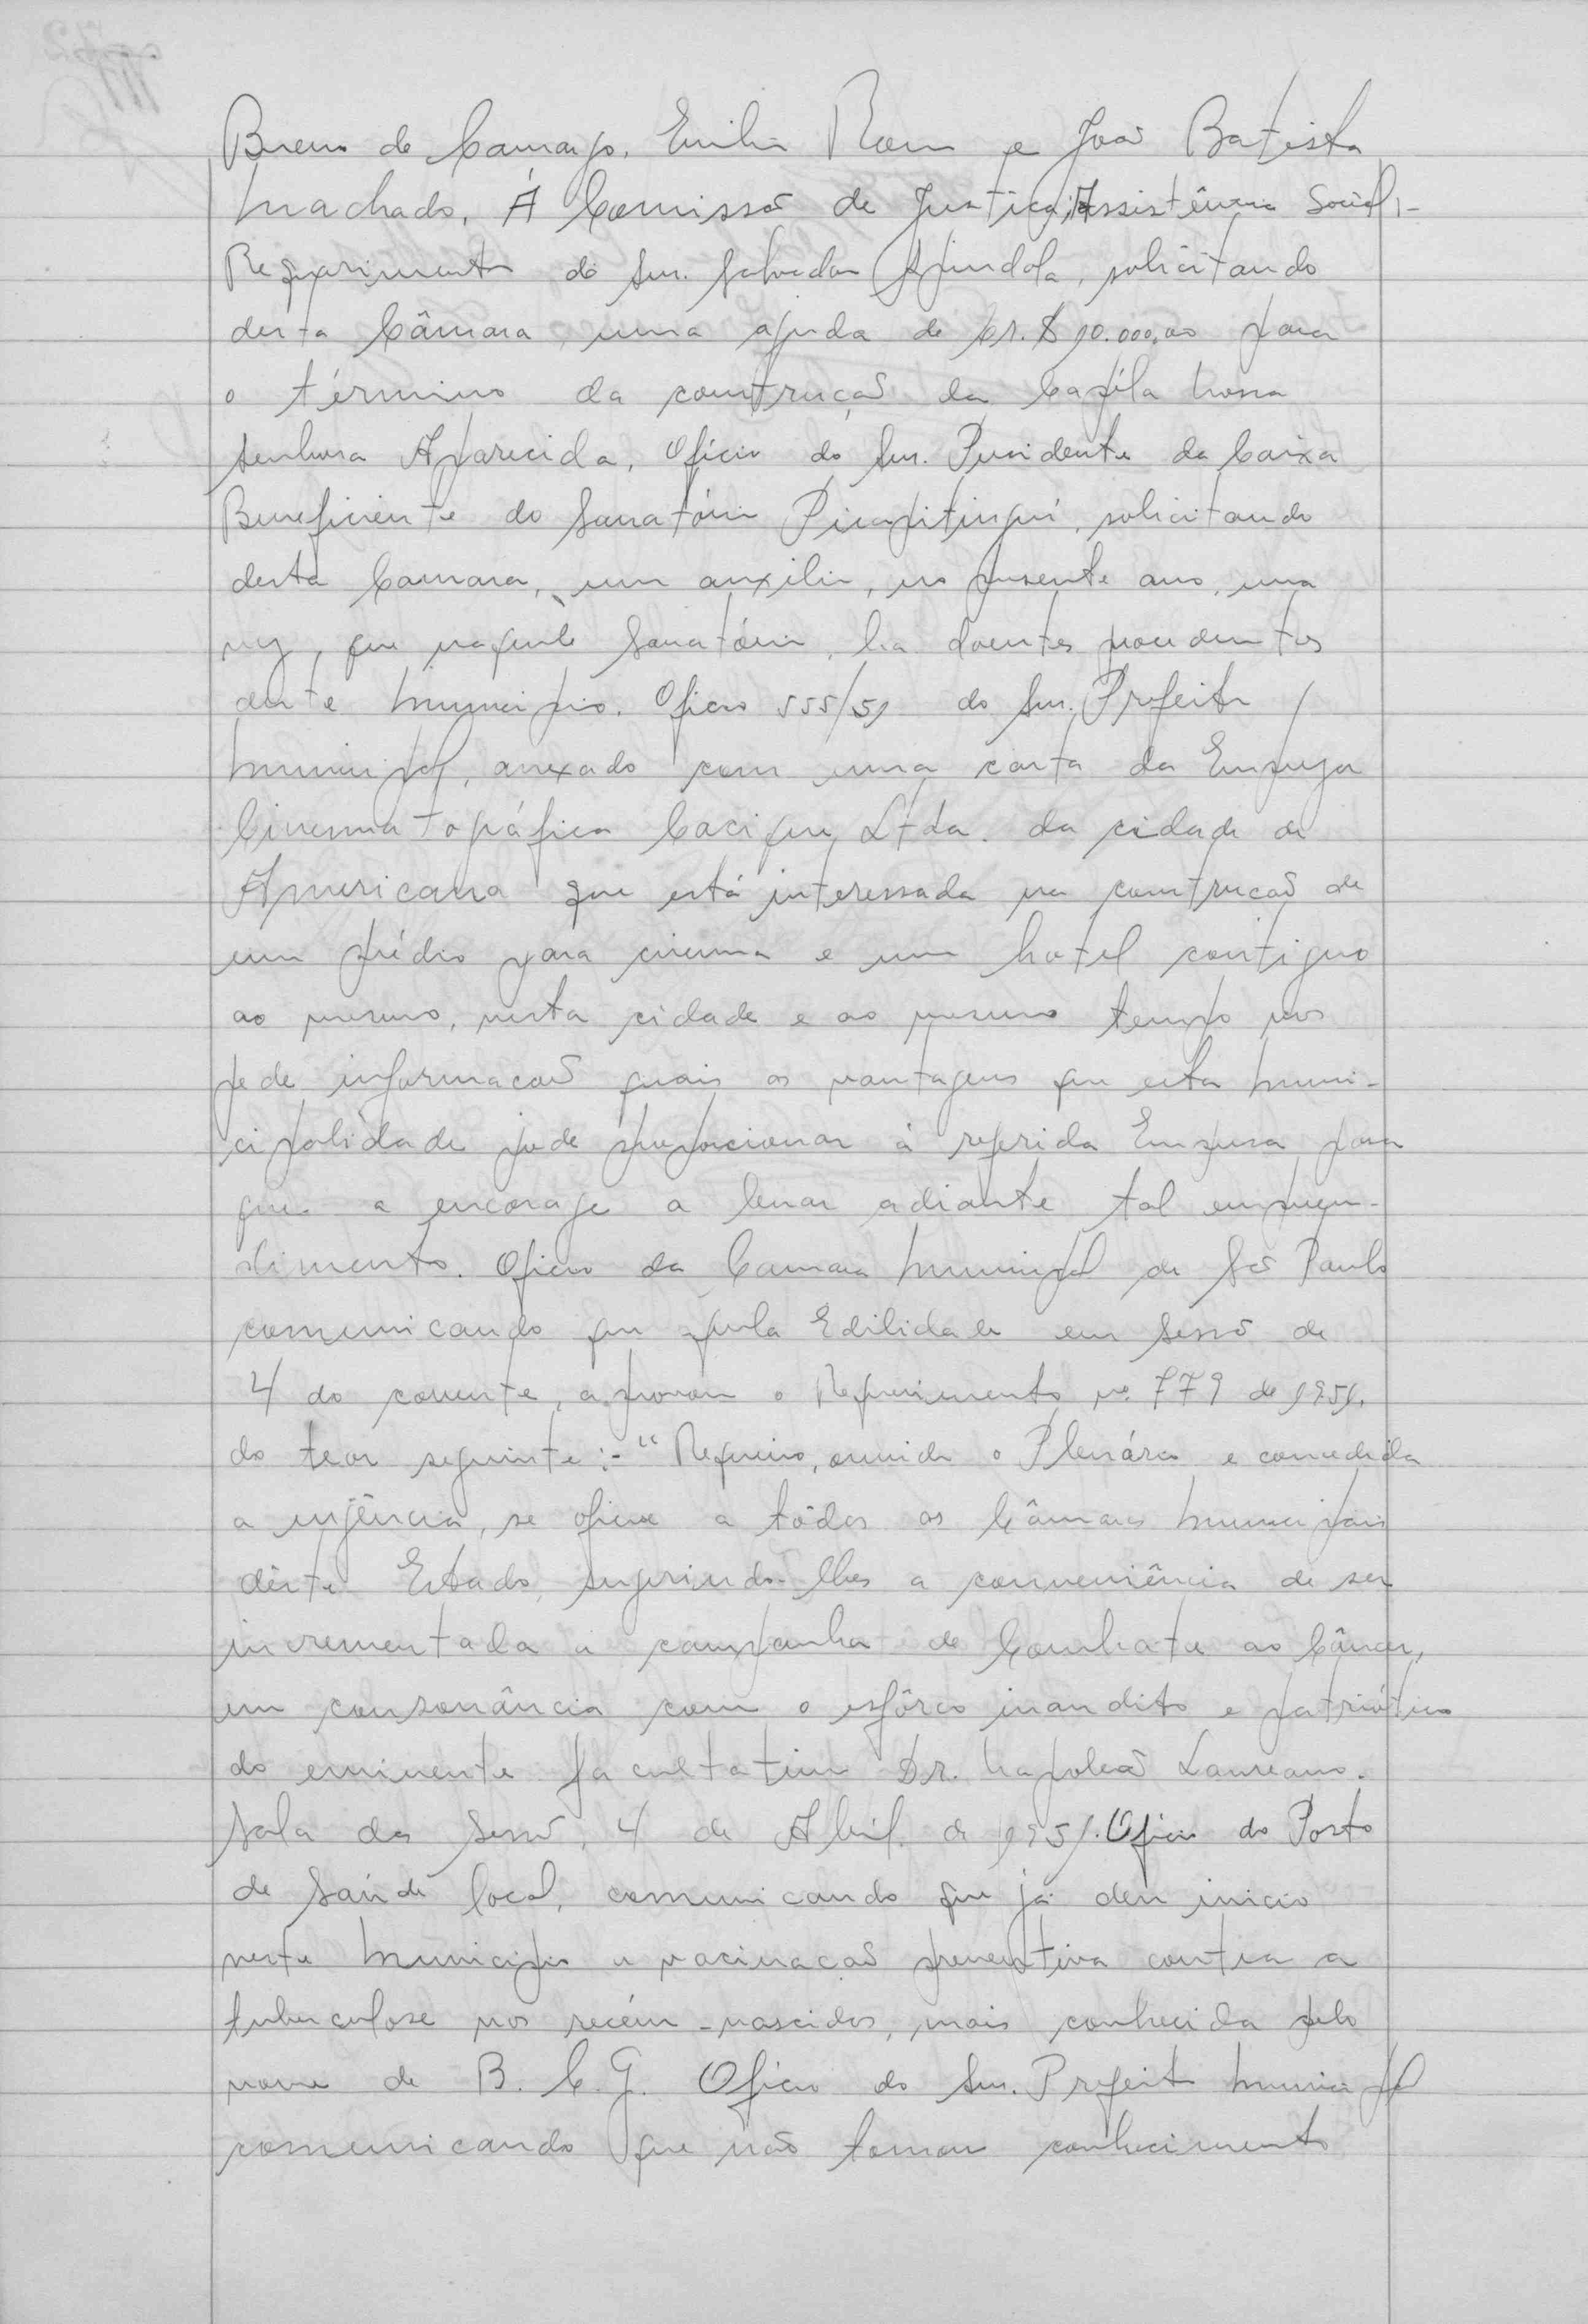 Bueno de Camargo, Emilio Rom e João Batista
Machado, Á Comissão de Justiça, Assistência Social,-
Requerimento do Snr. Salvador Spindola, solicitando
desta Câmara uma ajuda de Cr.$ 10.000,00 para
o término da construção da Capéla Nossa
Senhora Aparecida, Oficio do Snr. Presidente da Caixa
Beneficiente do Sanatório Pirapitingui, solicitando
desta Camara, um auxilio, no presente ano, uma
vez, que naquele Sanatório, ha doentes procedentes
deste Municipio. Oficio 555/51 do Snr. Prefeito
Municipal, anexado com uma carta da Empreza
Cinematográfica Cacique Ltda. da cidade de
Americana que está interessada na construção de
um prédio para cinema e um hotel contiguo
ao mesmo, nesta cidade e ao mesmo tempo nos
pede informações quais as vantagens que esta Muni-
cipalidade pode proporcionar à referida Empresa para
que a encoraje a levar adiante tal empreen-
dimento. Oficio da Camara Municipal de São Paulo
comunicando que aquela Edilidade em sessão de
4 do corrente, aprovou o Requerimento nº 779 de 1951.
do teor seguinte:- "Requeiro, ouvido o Plenário e concedida
a urgência, se oficie a tôdas as Câmaras Municipais
dêste Estado, sugerindo-lhes a conveniência de ser
incrementada a campanha de Combate ao Câncer,
em consonância com o esfôrço inaudito e patriótico
do eminente facultativo Dr. Napoleão Laureano.
Sala das Sessões, 4 de Abril de 1951. Oficio do Posto
de Saúde local, comunicando que já deu inicio
neste Municipio a vacinação preventiva contra a
tuberculose nos recém-nascidos, mais conhecida pelo
nome de B. C. G. Oficio do Snr. Prefeito Municipal
comunicando que não tomou conhecimento